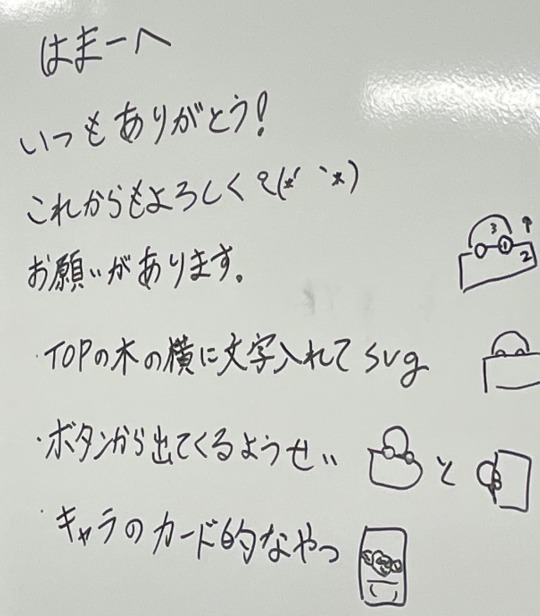 はまーへ
いつもありがとう!
これからもよろしく
お願いがあります。
・TOPの木の横に文字入れて svg
・ボタンから出てくるようせい と
・キャラのカード的なやつ
3
1
2